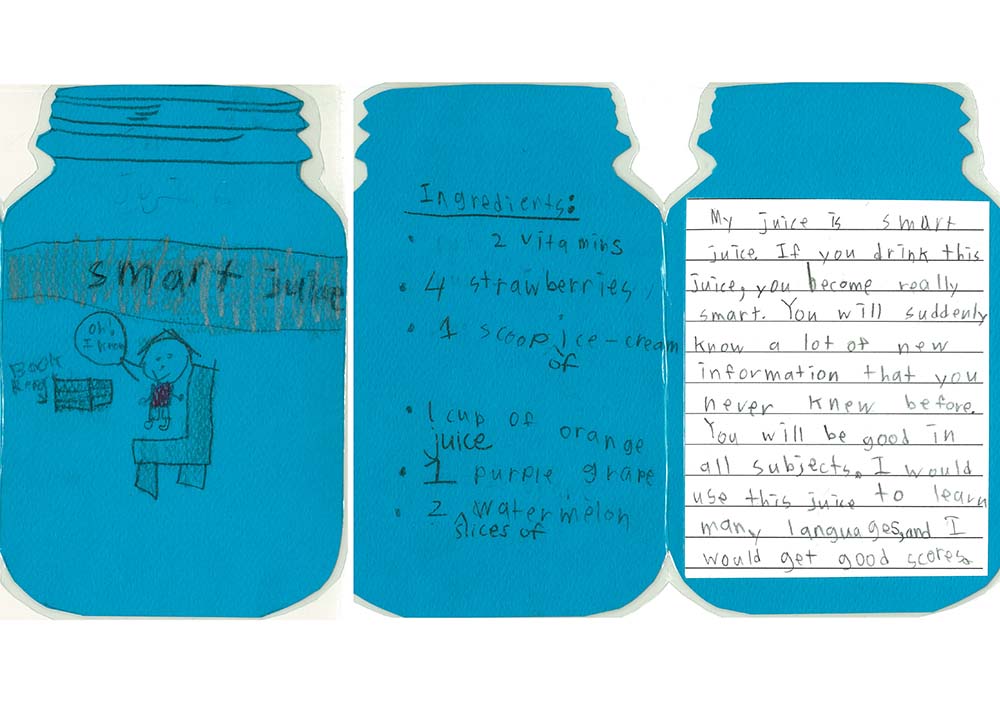 smart juice
Oh!
I know
Book
Ingredients:
• 2 vitamins
• 4 strawberries
• 1 scoop ice-cream
of
• 1 cup of orange
juice
• 1 purple grape
• 2 watermelon
slices of
My juice is smart
juice. If you drink this
juice, you become really
smart. You will suddenly
know a lot of new
information that you
never knew before.
You will be good in
all subjects. I would
use this juice to learn
many languages, and I
would get good scores.